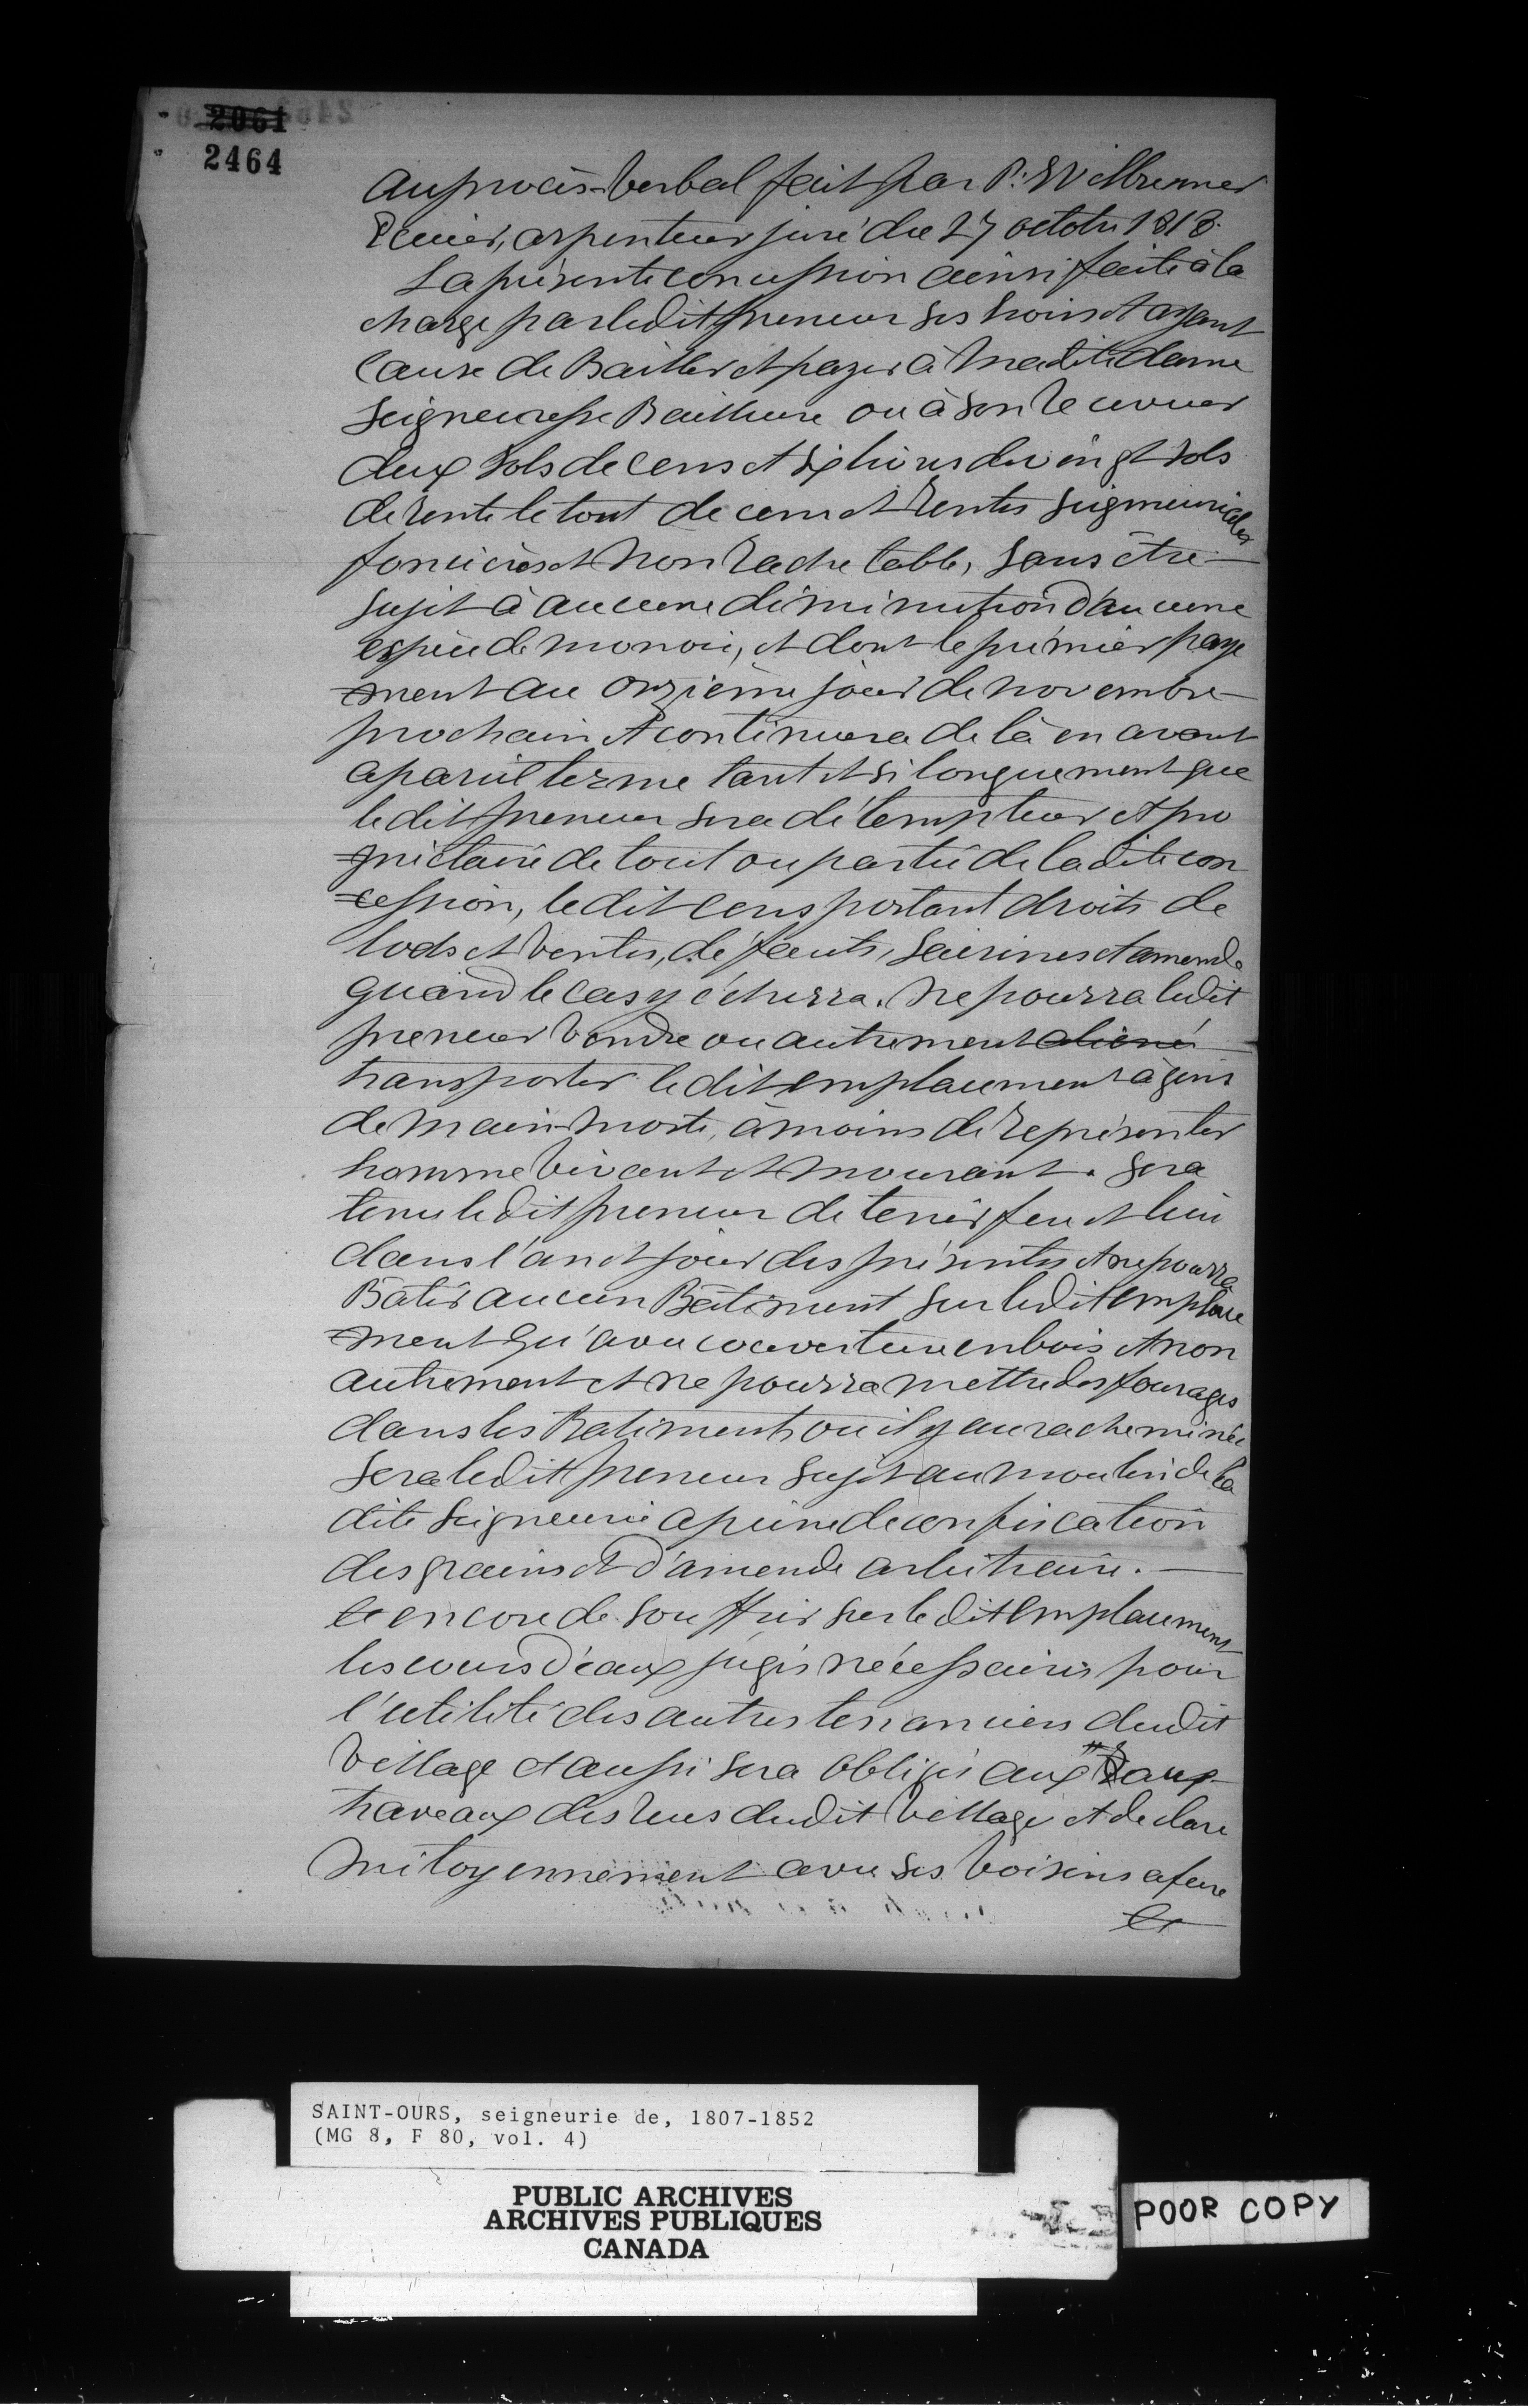 2061
2464
au procès-Verbal fait par P: Welbrenner
Ecuier, arpenteur juré du 27 octobre 1818.
La présente concession ainsi faite à la
charge par ledit preneur ses hoirs et ayant
Cause de Bailler et payer à Madite dame
Seigneuresse Bailleure ou à son Receveur
deux Sols de Cens et six livres de vingt sols
de rente le tout de cens et Rentes Seigneuriales
foncières et Non Rachetable, Sans être
Sujet à aucune diminution d'aucune
espèce de monoie, et dont le prémier paye
=ment au Onzième jour de novembre
prochain et continuera de là en avant
a pareil terme tant et si longuement que
ledit preneur sera détempteur et pro
=priétaire de tout ou partie de ladite con
=cession, ledit Cens portant droits de
lods et Ventes, défauts, Saisines et amende
quand le Cas y écherra. Ne pourra ledit
preneur Vendre ou autrement aliené
transporter ledit emplacement à gens
de Main-Morte, à moins de représenter
homme Vivant et Mourant. Sera
tenu ledit preneur de tenir feu et lieu
dans l'an et jour des présentes et ne pourra
Bâtir aucun Bâtiment Sur ledit emplace
=ment qu'avec couverture en bois et non
autrement et ne pourra mettre des fourages
dans les Batiments ou il y aura cheminée
Sera ledit preneur Sujet au Moulin de la
dite Seigneurie a peine de confiscation
des grains et d'amende arbitraire.
et encore de Souffrir sur ledit Emplacement
les cours d'eaux jugés nécessaires pour
l'utilité des autres tenanciers dudit
Village et aussi sera Obligé aux
travaux des Rues dudit Village et de clore
Mitoyennement avec ses Voisins a feure
et
SAINT-OURS, seigneurie de, 1807-1852
(MG 8, F 80, vol. 4)
PUBLIC ARCHIVES
ARCHIVES PUBLIQUES
CANADA
POOR COPY